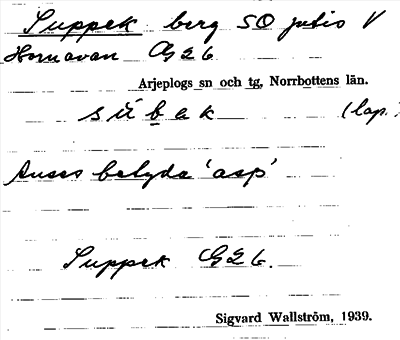 Suppek berg SO jutis V
Hornavan G26
Arjeplogs sn och tg, Norrbottens län.
sùb̲ak (lap.)
Anses betyda 'asp'
Suppek G26.
Sigvard Wallström, 1939.